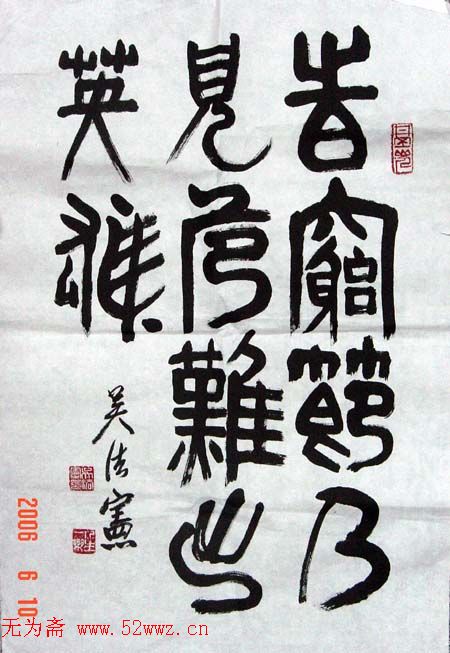 旹窮節乃
見危難出
英雄
吴法憲
2006 6 10
无为斋 www.52wwz.cn